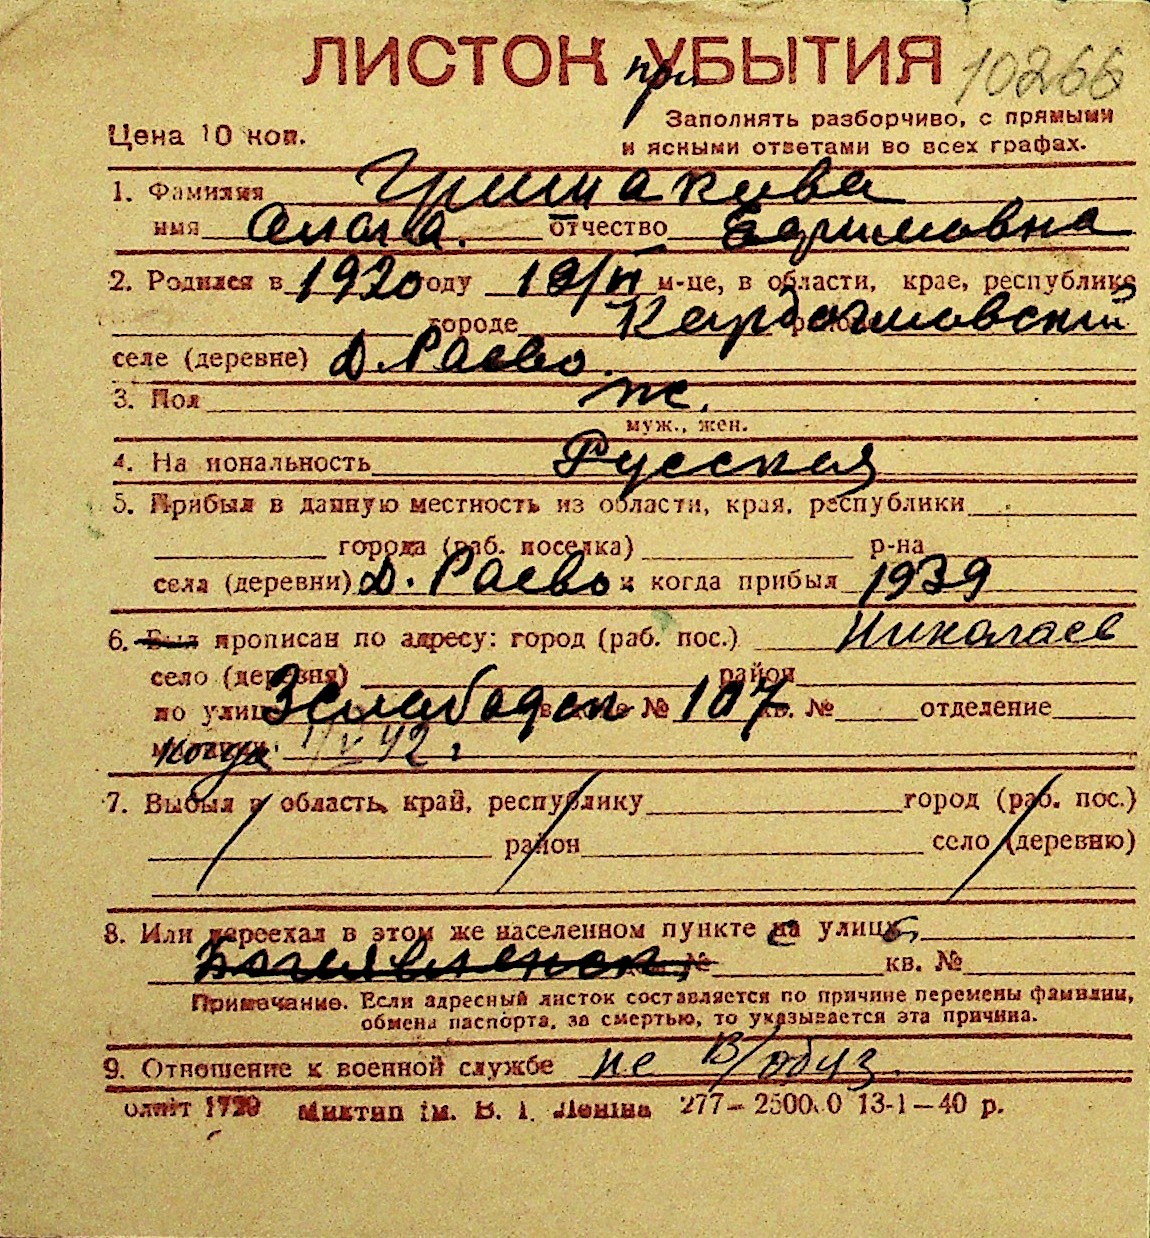 ЛИСТОК при УБЫТИЯ 10266
Цена 10 коп.
Заполнять разборчиво, с прямыми
и ясными ответами во всех графах.
1. Фамилия Гришакова
имя отчество Ефимовна
2. Родился в 1920 году м-це, в области, крае, республике
городе
селе (деревне) д. Раево.
3. Пол ж.
муж., жен.
4. На иональность Русская
5. Прибыл в данную местность из области, края, республики
города (раб. поселка) р-на
села (деревни) д. Раево и когда прибыл 1939
6. Был прописан по адресу: город (раб. пос.) Николаев
село (деревня) район
по улице № 107 кв. № отделение
когда 1/V 42 г.
7. Выбыл в область, край, республику город (раб. пос.)
район село (деревню)
8. Или переехал в этом же населенном пункте с улицы
Богоявленск, № кв. №
Примечание. Если адресный листок составляется по причине перемены фамилии,
обмена паспорта, за смертью, то указывается эта причина.
9. Отношение к военной службе не в/обяз.
Миктип ім. В. І. Леніна 277— 13-1—40 р.